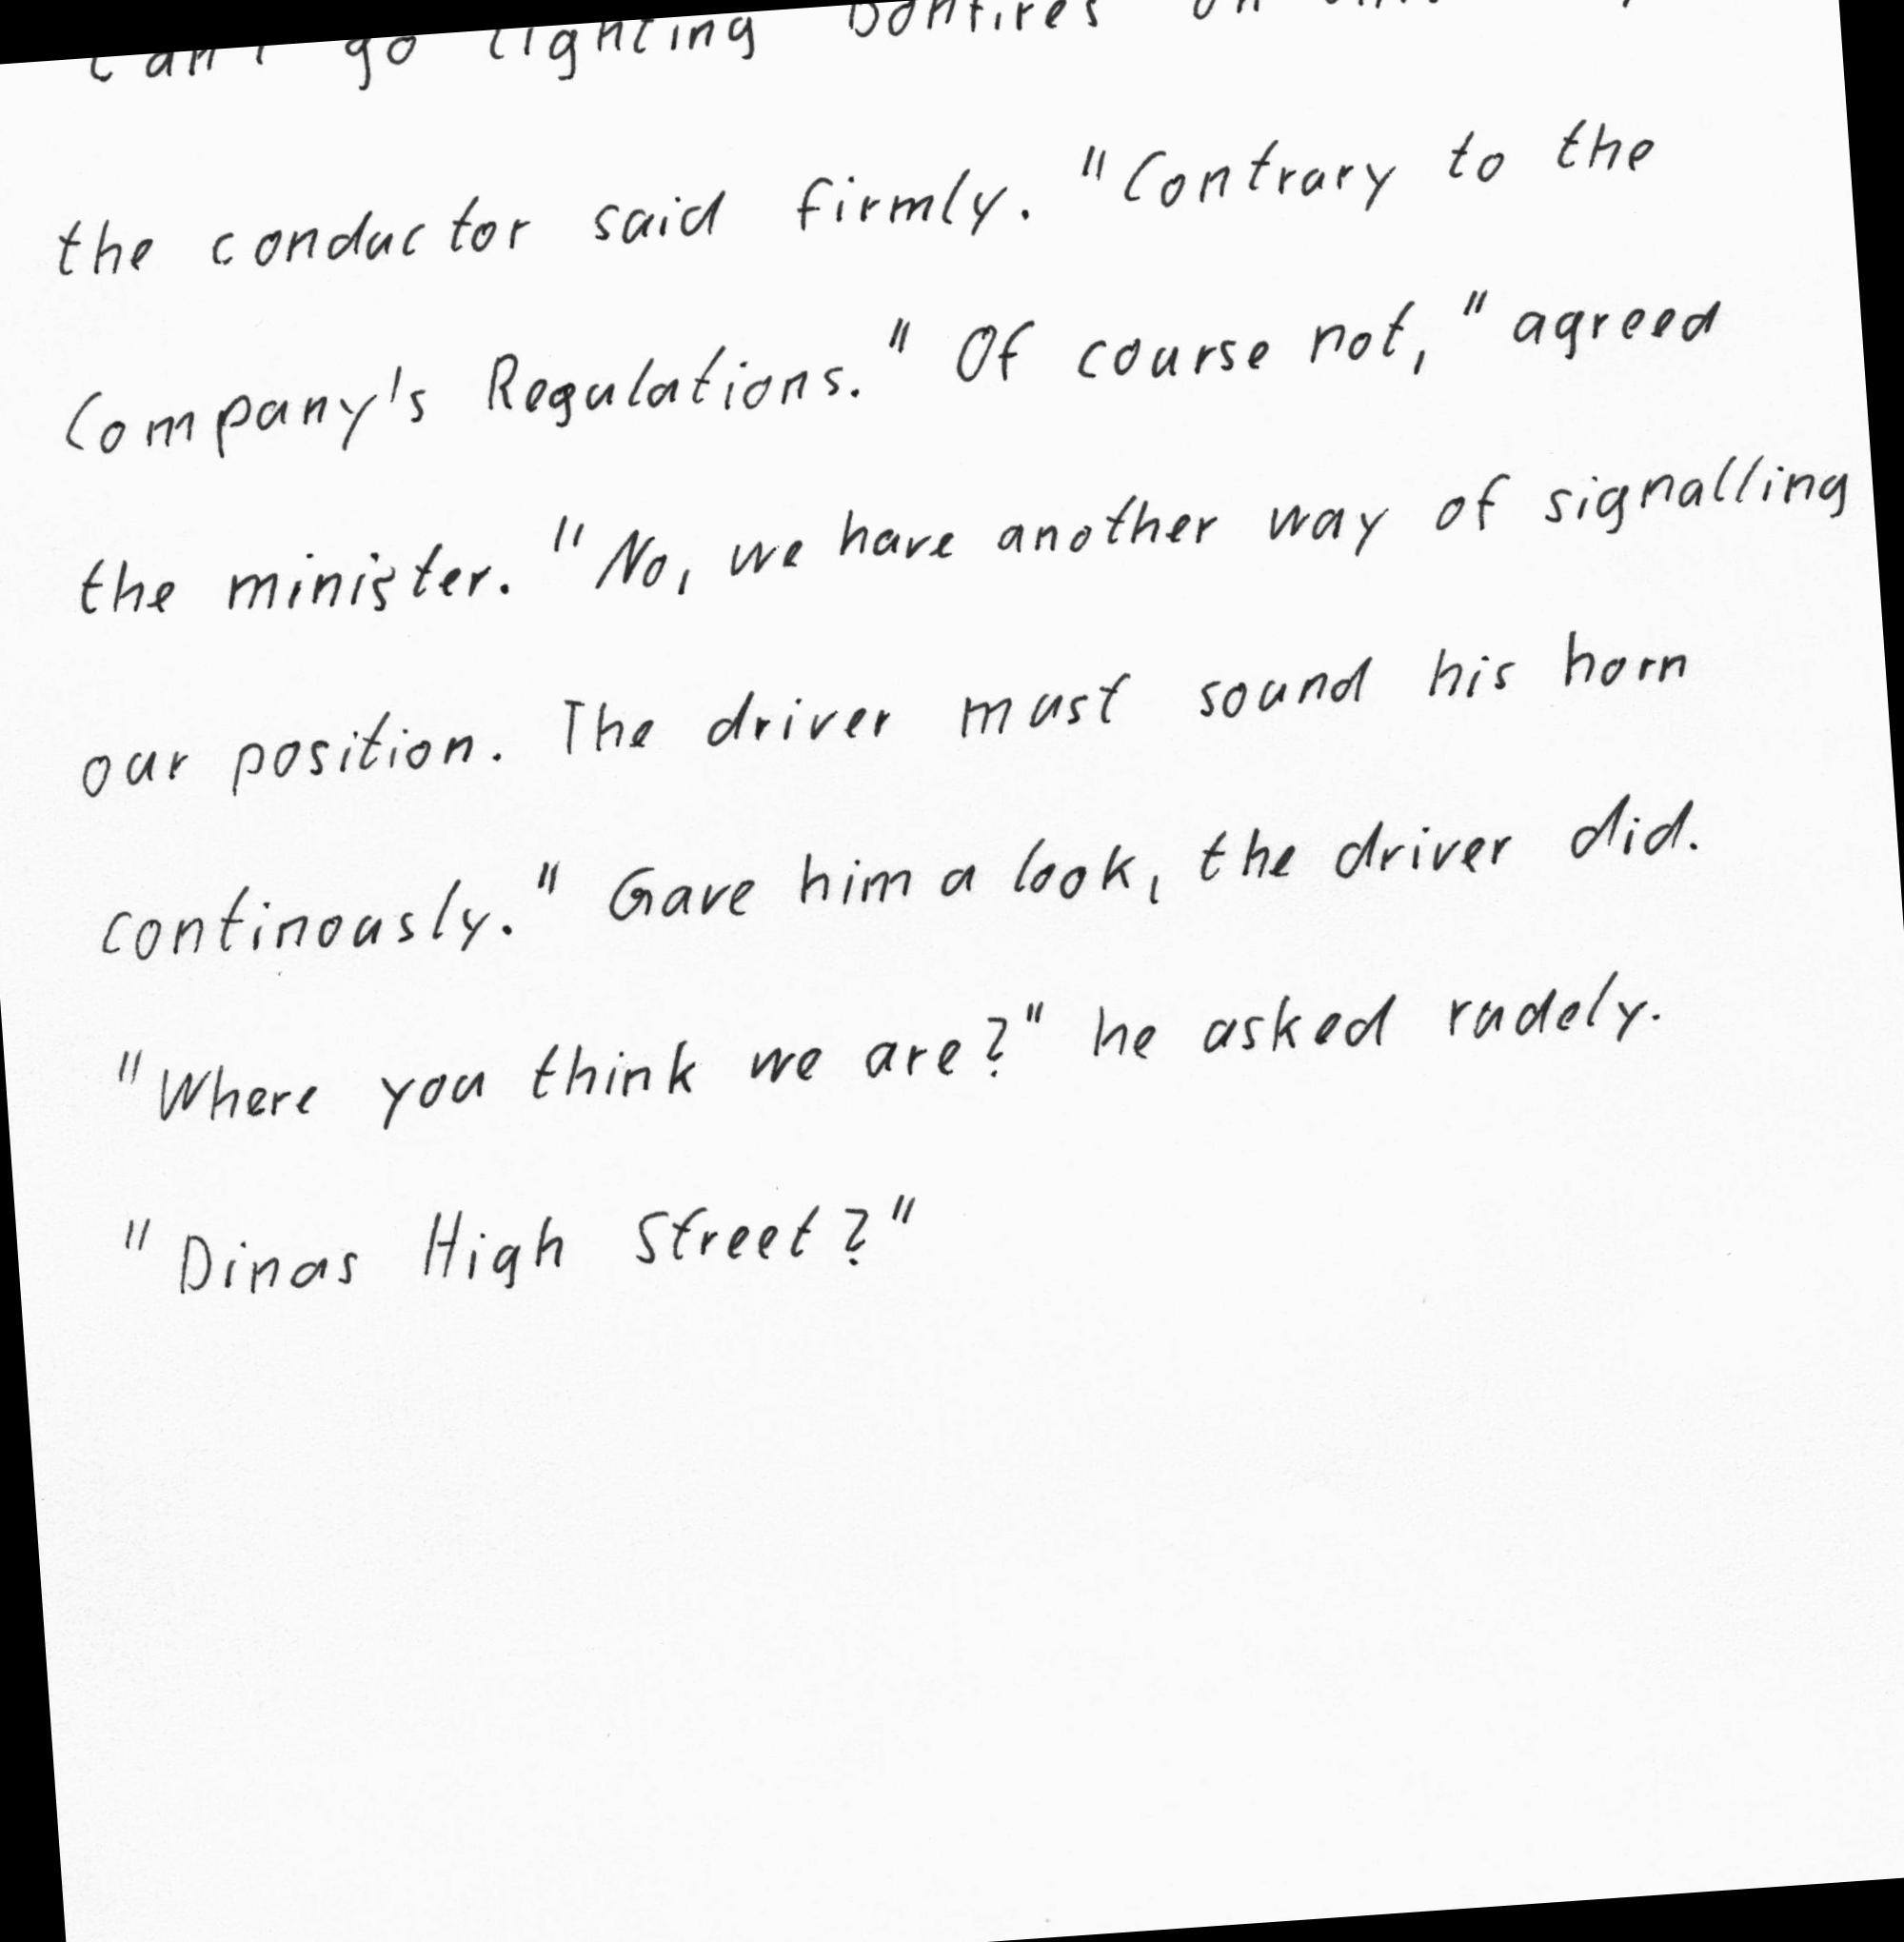 can't go lighting bonfires on
the conductor said firmly. "Contrary to the
Company's Regulations." Of course not," agreed
the minister. "No, we have another way of signalling
our position. The driver must sound his horn
continously." Gave him a look, the driver did.
"Where you think we are?" he asked rudely.
"Dinas High Street?"